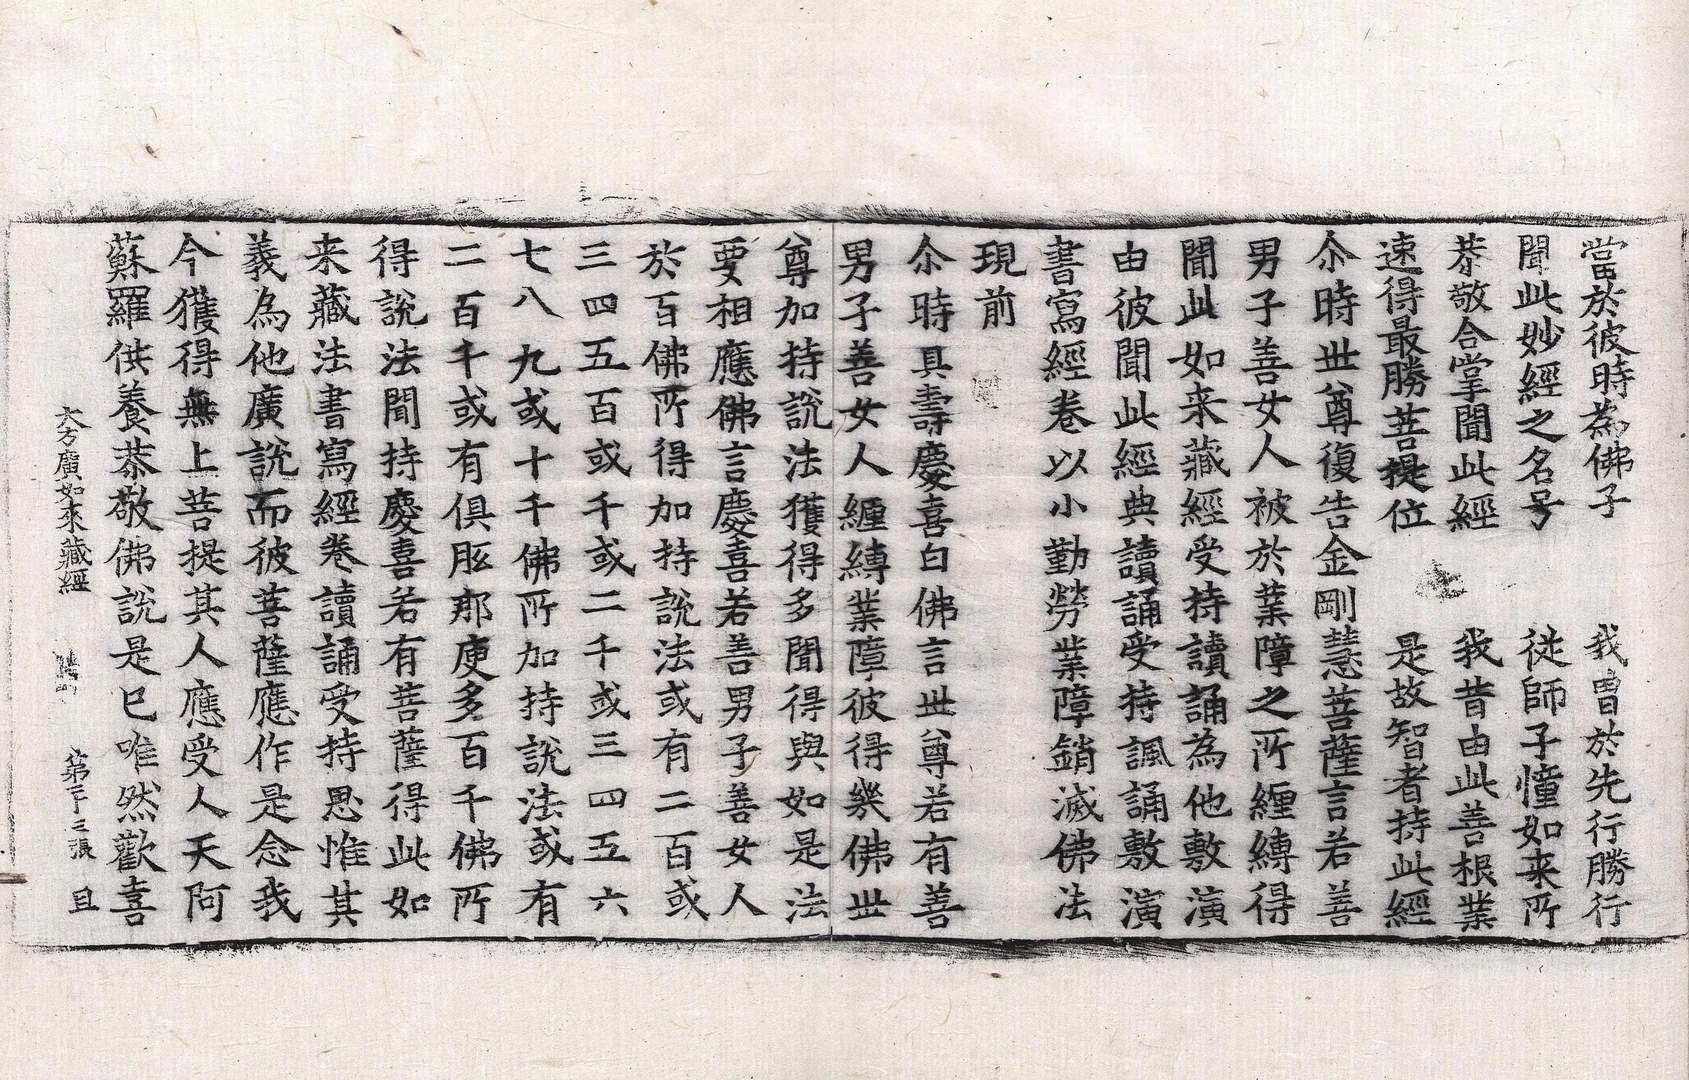 當於彼時為佛子　我曽於先行勝行
聞此妙經之名号　従師子憧如来所
恭敬合掌聞此經　我昔由此善根業
速得最勝菩提位　是故智者持此經
尒時世尊復告金剛慧菩薩言若善
男子善女人被於業障之所纏縛得
聞此如来藏經受持讀誦為他敷演
由彼聞此經典讀誦受持諷誦敷演
書寫經卷以小勤勞業障銷滅佛法
現前
尒時具壽慶喜白佛言世尊若有善
男子善女人纏縛業障彼得幾佛世
尊加持說法獲得多聞得與如是法
要相應佛言慶喜若善男子善女人
於百佛所得加持說法或有二百或
三四五百或千或二千或三四五六
七八九或十千佛所加持說法或有
二百千或有俱胝那庾多百千佛所
得說法聞持慶喜若有菩薩得此如
来藏法書寫經卷讀誦受持思惟其
義為他廣說而彼菩薩應作是念我
今獲得無上菩提其人應受人天阿
蘇羅供養恭敬佛說是已唯然歡喜
大方廣如来藏經　第二十之張　且